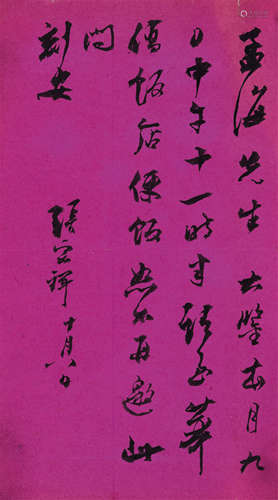 孟海先生大鑒本月九
日中午十一時半請至華
僑飯店便飯恕不再邀此
問
刻安
張宗祥十月八日